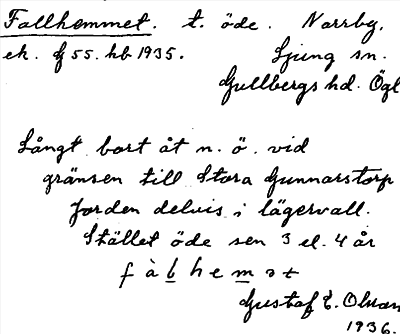 Fallhemmet. t. öde. Narrby,
ek. f 55. hb 1935. Ljung sn.
Gullbergs hd. Ögl
Långt bort åt n. ö. vid
gränsen till Stora Gunnarstorp
Jorden delvis i lägervall.
Stället öde sen 3 el. 4 år
f à b h e m ə t
Gustaf E. Olsson
1936.